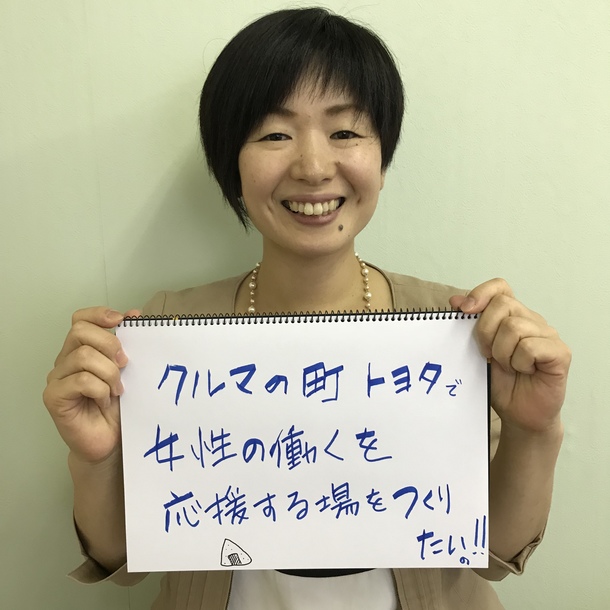 クルマの町 トヨタで
女性の働くを
応援する場をつくり
たいの!!